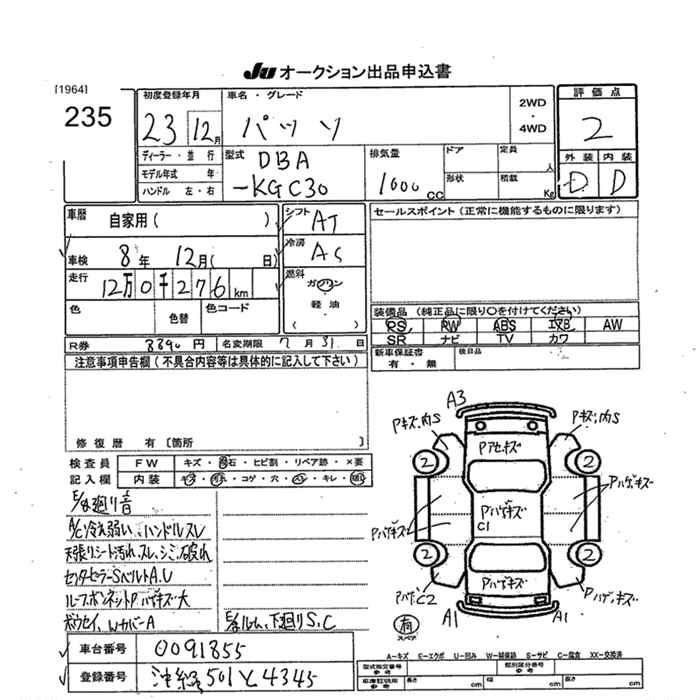 Ju オークション出品申込書
[1964]
235
初度登録年月
23 12月
車名・グレード
パッソ
2WD
・
4WD
評価点
2
外装 内装
D D
ディーラー・並行
モデル年式 年
ハンドル 左・右
型式
DBA
-KGC30
排気量
1000 cc
ドア
形状
定員
人
積載
Kg
車歴
自家用( )
車検
8年 12月( 日)
走行
12万0千276km
色
色替
色コード
シフト
AT
冷房
AC
燃料
ガソリン
・
軽油
( )
セールスポイント(正常に機能するものに限ります)
装備品(純正品に限り○を付けてください)
PS PW ABS エアB AW
SR ナビ TV カワ
新車保証書
有・無
後日品
R券 8890円
名変期限 7月31日
注意事項申告欄(不具合内容等は具体的に記入して下さい)
修復歴 有〔箇所 〕
検査員
記入欄
FW キズ・飛石・ヒビ割・リペア跡・×要
内装
E/G廻り音
A/C冷え弱い、ハンドルスレ
天張りシート汚れ、スレ、シミ、破れ
ルーフボンネットPハゲキズ大
Wカバー A
E/Gルーム、下廻りS,C
A3
Pキズ、内S
Pキズ、内S
Pアセキズ
2
2
Pハゲキズ
Pハゲキズ
C1
Pハゲキズ
2
2
Pハゲキズ
PハゲC2
Pハゲキズ
A1
A1
有
スペア
A-キズ E-エクボ U-凹み W-補修跡 S-サビ C-腐食 XX-交換済
車台番号 0091855
登録番号 沖縄501と4345
型式指定番号
参考
類別区分番号
参考
車庫証明用
参考
長さ cm
幅 cm
高さ cm